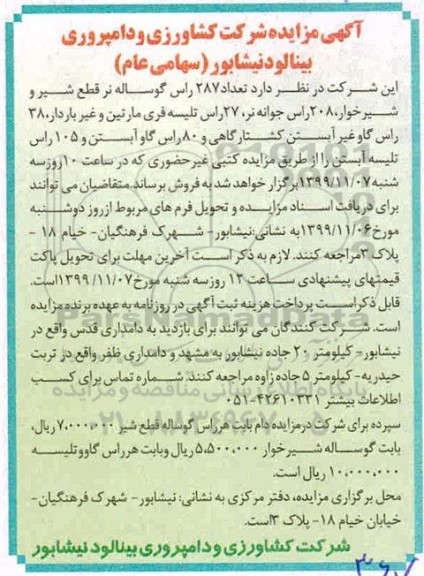 آگهی مزایده شرکت کشاورزی و دامپروری
بینالود نیشابور (سهامی عام)
این شرکت در نظر دارد تعداد ۲۸۷ راس گوساله نر قطع شیر و
شیرخوار، ۲۰۸ راس جوانه نر، ۲۷ راس تلیسه فری مارتین و غیر باردار، ۳۸
راس گاو غیر آبستن کشتارگاهی و ۸۰ راس گاو آبستن و ۱۰۵ راس
تلیسه آبستن را از طریق مزایده کتبی غیرحضوری که در ساعت ۱۰ روز سه
شنبه ۱۳۹۹/۱۱/۰۷ برگزار خواهد شد به فروش برساند. متقاضیان می توانند
برای دریافت اسناد مزایده و تحویل فرم های مربوط از روز دوشنبه
مورخ ۱۳۹۹/۱۱/۰۶ به نشانی: نیشابور- شهرک فرهنگیان- خیام ۱۸ -
پلاک ۳ مراجعه کنند. لازم به ذکر است آخرین مهلت برای تحویل پاکت
قیمتهای پیشنهادی ساعت ۱۲ روز سه شنبه مورخ ۱۳۹۹/۱۱/۰۷ است.
قابل ذکر است پرداخت هزینه ثبت آگهی در روزنامه به عهده برنده مزایده
است. شرکت کنندگان می توانند برای بازدید به دامداری قدس واقع در
نیشابور- کیلومتر ۲۰ جاده نیشابور به مشهد و دامداری ظفر واقع در تربت
حیدریه- کیلومتر ۵ جاده زاوه مراجعه کنند. شماره تماس برای کسب
اطلاعات بیشتر ۴۲۶۱۰۳۳۱-۰۵۱
سپرده برای شرکت در مزایده دام بابت هر راس گوساله قطع شیر ۷,۰۰۰,۰۰۰ ریال،
بابت گوساله شیرخوار ۵,۵۰۰,۰۰۰ ریال و بابت هر راس گاو و تلیسه
۱۰,۰۰۰,۰۰۰ ریال است.
محل برگزاری مزایده، دفتر مرکزی به نشانی: نیشابور- شهرک فرهنگیان-
خیابان خیام ۱۸- پلاک ۳ است.
شرکت کشاورزی و دامپروری بینالود نیشابور